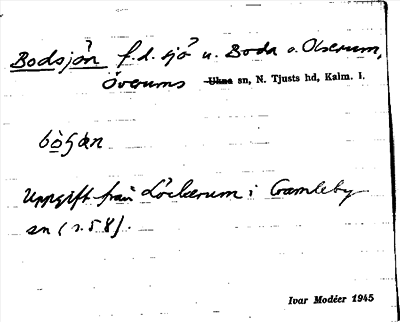 Bodsjön f.d. sjö u. Boda o. Olserum,
Överums Ukna sn, N. Tjusts hd, Kalm. l.
bòʃɑn
Uppgift från Löckerum i Gamleby
sn (s.58).
Ivar Modéer 1945